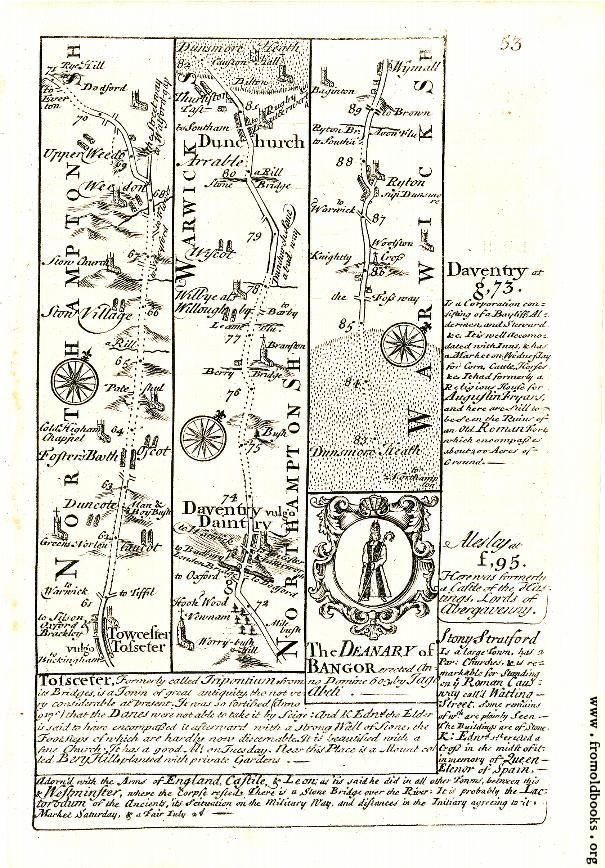 53
NORTHAMPTONSH
Rye Hill
to Everton
Dodford
70
Upper Weedo
69
Weedon
68
Stow Church
67
Stow Village
66
a Rill
65
Pateshul
Cold Higham
Chappel
64
Fosters Booth
Ascot
63
Duncote
Man &
Roy Bush
62
Greens Norton
Caucot
to
Warwick
to Tiffil
61
to Silson
Oxford &
Brackley
vulgo
Buckingham
Towcester
Tosseter
WARWICKS
Dunsmore Heath
82
Causton Hall
Bilton
Thurlston
Past
81
to Rugby
to Southam
Dunchurch
Arrable
80
a Rill
Stone
Bridge
79
Dunchurch Lane
a bad way
Wiscot
78
Willbye als
Willoughby
to
Barby
Leam flu
77
Branston
Berry
Bridge
76
Bush
75
74
Daventry vulgo
Daintry
to Oxford
72
Hook Wood
Vennant
Mile
bush
Worry-bush
Hill
NORTHAMPTONSH
WARWICKSH
Wymall
Baginton
89
to Brown
Ryton Br.
Avon Flu
to Southa
88
Ryton
sup. Dunsmore
to
Warwick
87
Woolston
Knightly
Cross
86
the Foss way
85
84
83
Dunsmore Heath
to
Northamp
ton
The DEANARY of
BANGOR erected An
no Domine 603 by
Abeli
Daventry at
g,73.
Is a Corporation con=
sisting of a Bayliff, Al=
dermen, and Steward
&c. It is well Accomo=
dated with Inns, & has
a Market on Wednesday
for Corn, Cattle, Horses
&c. It had formerly a
Religious House for
Augustin Fryars,
and here are Still to
be seen the Ruins of
an Old Roman Fort
which encompasses
about 200 Acres of
Ground.
Alesley at
f,95.
Here was formerly
a Castle of the Has=
tings, Lords of
Abergavenny.
Stony Stratford
Is a large Town, has 2
Par: Churches, & is re=
markable for Standing
on ye Roman Caus=
way call'd Watling=
Street, some remains
of wch are plainly Seen.
The Buildings are of Stone.
K: Edwd. 1st erected a
Cross in the midst of it
in memory of Queen
Elenor of Spain,
Tosseter, Formerly called Tripontium from
its Bridges, is a Town of great antiquity, tho not ve
ry considerable at present. It was so fortified (anno
917) that the Danes were not able to take it by Seige: And K Edwd the Elder
is said to have encompassed it afterward with a Strong Wall of Stone, the
Footsteps of which are hardly now discernable. It is beautified with a
fine Church. It has a good Mt on Tuesday. Near this Place is a Mount cal
led Bery Hill planted with private Gardens.
Adorn'd with the Arms of England, Castile, & Leon; as tis said he did in all other Towns, between this
& Westminster, where the Corpse rested. There is a Stone Bridge over the River. It is probably the Lac=
torodum of the Ancients, its Scituation on the Military Way, and distances in the Initiary agreeing to it.
Market Saturday, & a Fair July 22
www.fromoldbooks.org